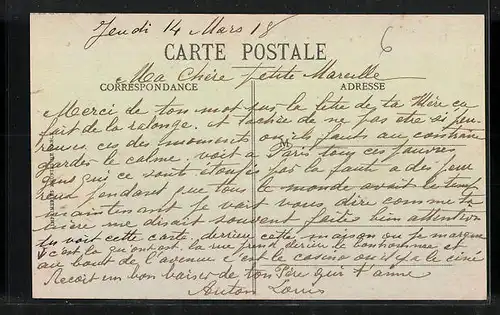 Jeudi 14 Mars 18
6
CARTE POSTALE
Ma Chère petite Marcelle
CORRESPONDANCE
ADRESSE
Merci de ton mot sur la lettre de ta Mère ça
fait de la relonge. et tachée de ne pas être si peu
reuse ces des moments ou ils faits au contraire
M
garder le calme. voit a Paris tous ces pauvres
gens qui ce sont étoufes par la faute a des peu
reux pendant que tous le monde avait le temps
maintenant je vait vous dire comme ta
mère me disait souvent faites bien attention
tu voit cette carte. derriere cette maison ou je marque
c'est la qu'ont est. la rue prend derière le bonhomme et
au bout de l'avenue c'est le casino ou il y a le ciné
Recoit un bon baiser de ton Père qui t'aime
Anton Louis